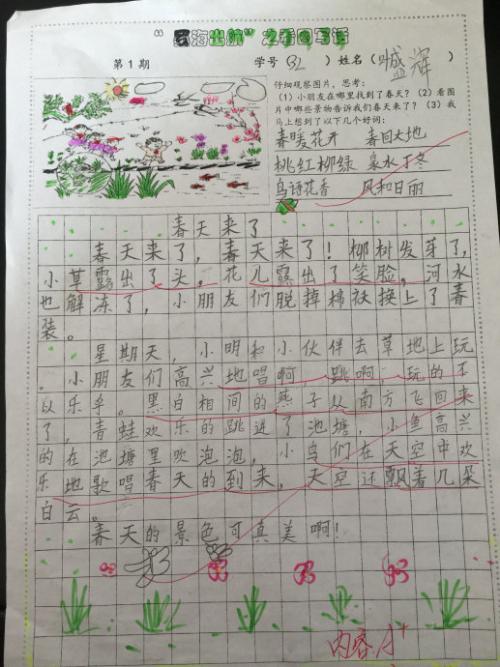 “云海出航”之看图写话
第1期 学号(32)姓名(臧辉)
仔细观察图片，思考：
(1)小朋友在哪里找到了春天？(2)看图
片中哪些景物告诉我们春天来了？(3)我
马上想到了以下几个好词：
春暖花开 春回大地
桃红柳绿 泉水丁冬
鸟语花香 风和日丽
春天来了
春天来了，春天来了！柳树发芽了，
小草露出了头，花儿露出了笑脸，河水
也解冻了，小朋友们脱掉棉袄换上了春
装。
星期天，小明和小伙伴去草地上玩
。小朋友们高兴地唱啊，跳啊，玩的不
以乐乎。黑白相间的燕子从南方飞回来
了，青蛙欢乐的跳进了池塘，小鱼高兴
的在池塘里吹泡泡，小鸟们在天空中欢
乐地歌唱春天的到来，天空还飘着几朵
白云。
春天的景色可真美啊！
内容A+